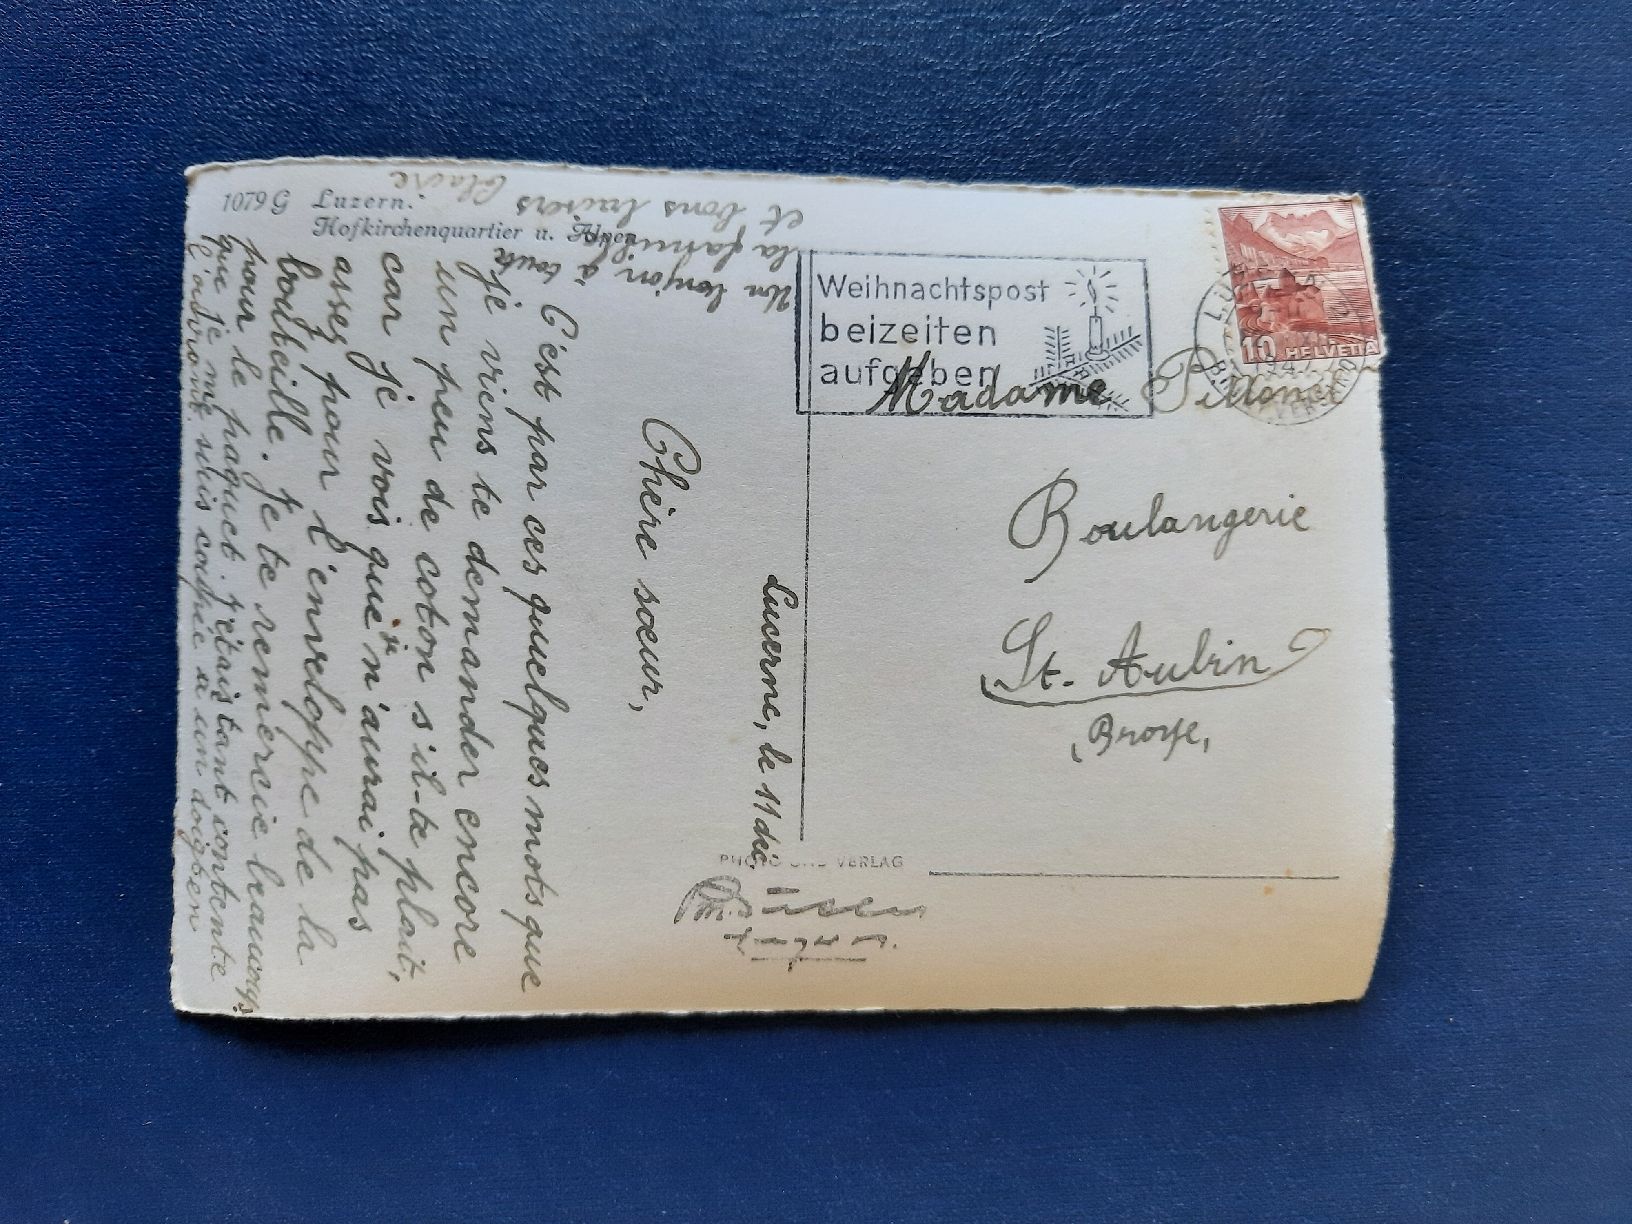 1079 G Luzern.
Hofkirchenquartier u. Alpen
Weihnachtspost
beizeiten
aufgeben
10 HELVETIA
Madame Pillonel
Boulangerie
St. Aubin
(Broye)
PHOTO UND VERLAG
Lucerne, le 11 déc
Chère sœur,
C'est par ces quelques mots que
je viens te demander encore
un peu de coton s'il-te plait,
car je vois que n'aurai pas
assez pour l'enveloppe de la
bouteille. Je te remercie beaucoup
pour le paquet j'étais tant contente
que je me
l'ouvrant suis coupée a un doigt
Un bonjour à toute
la famille
et bons baisers Claire